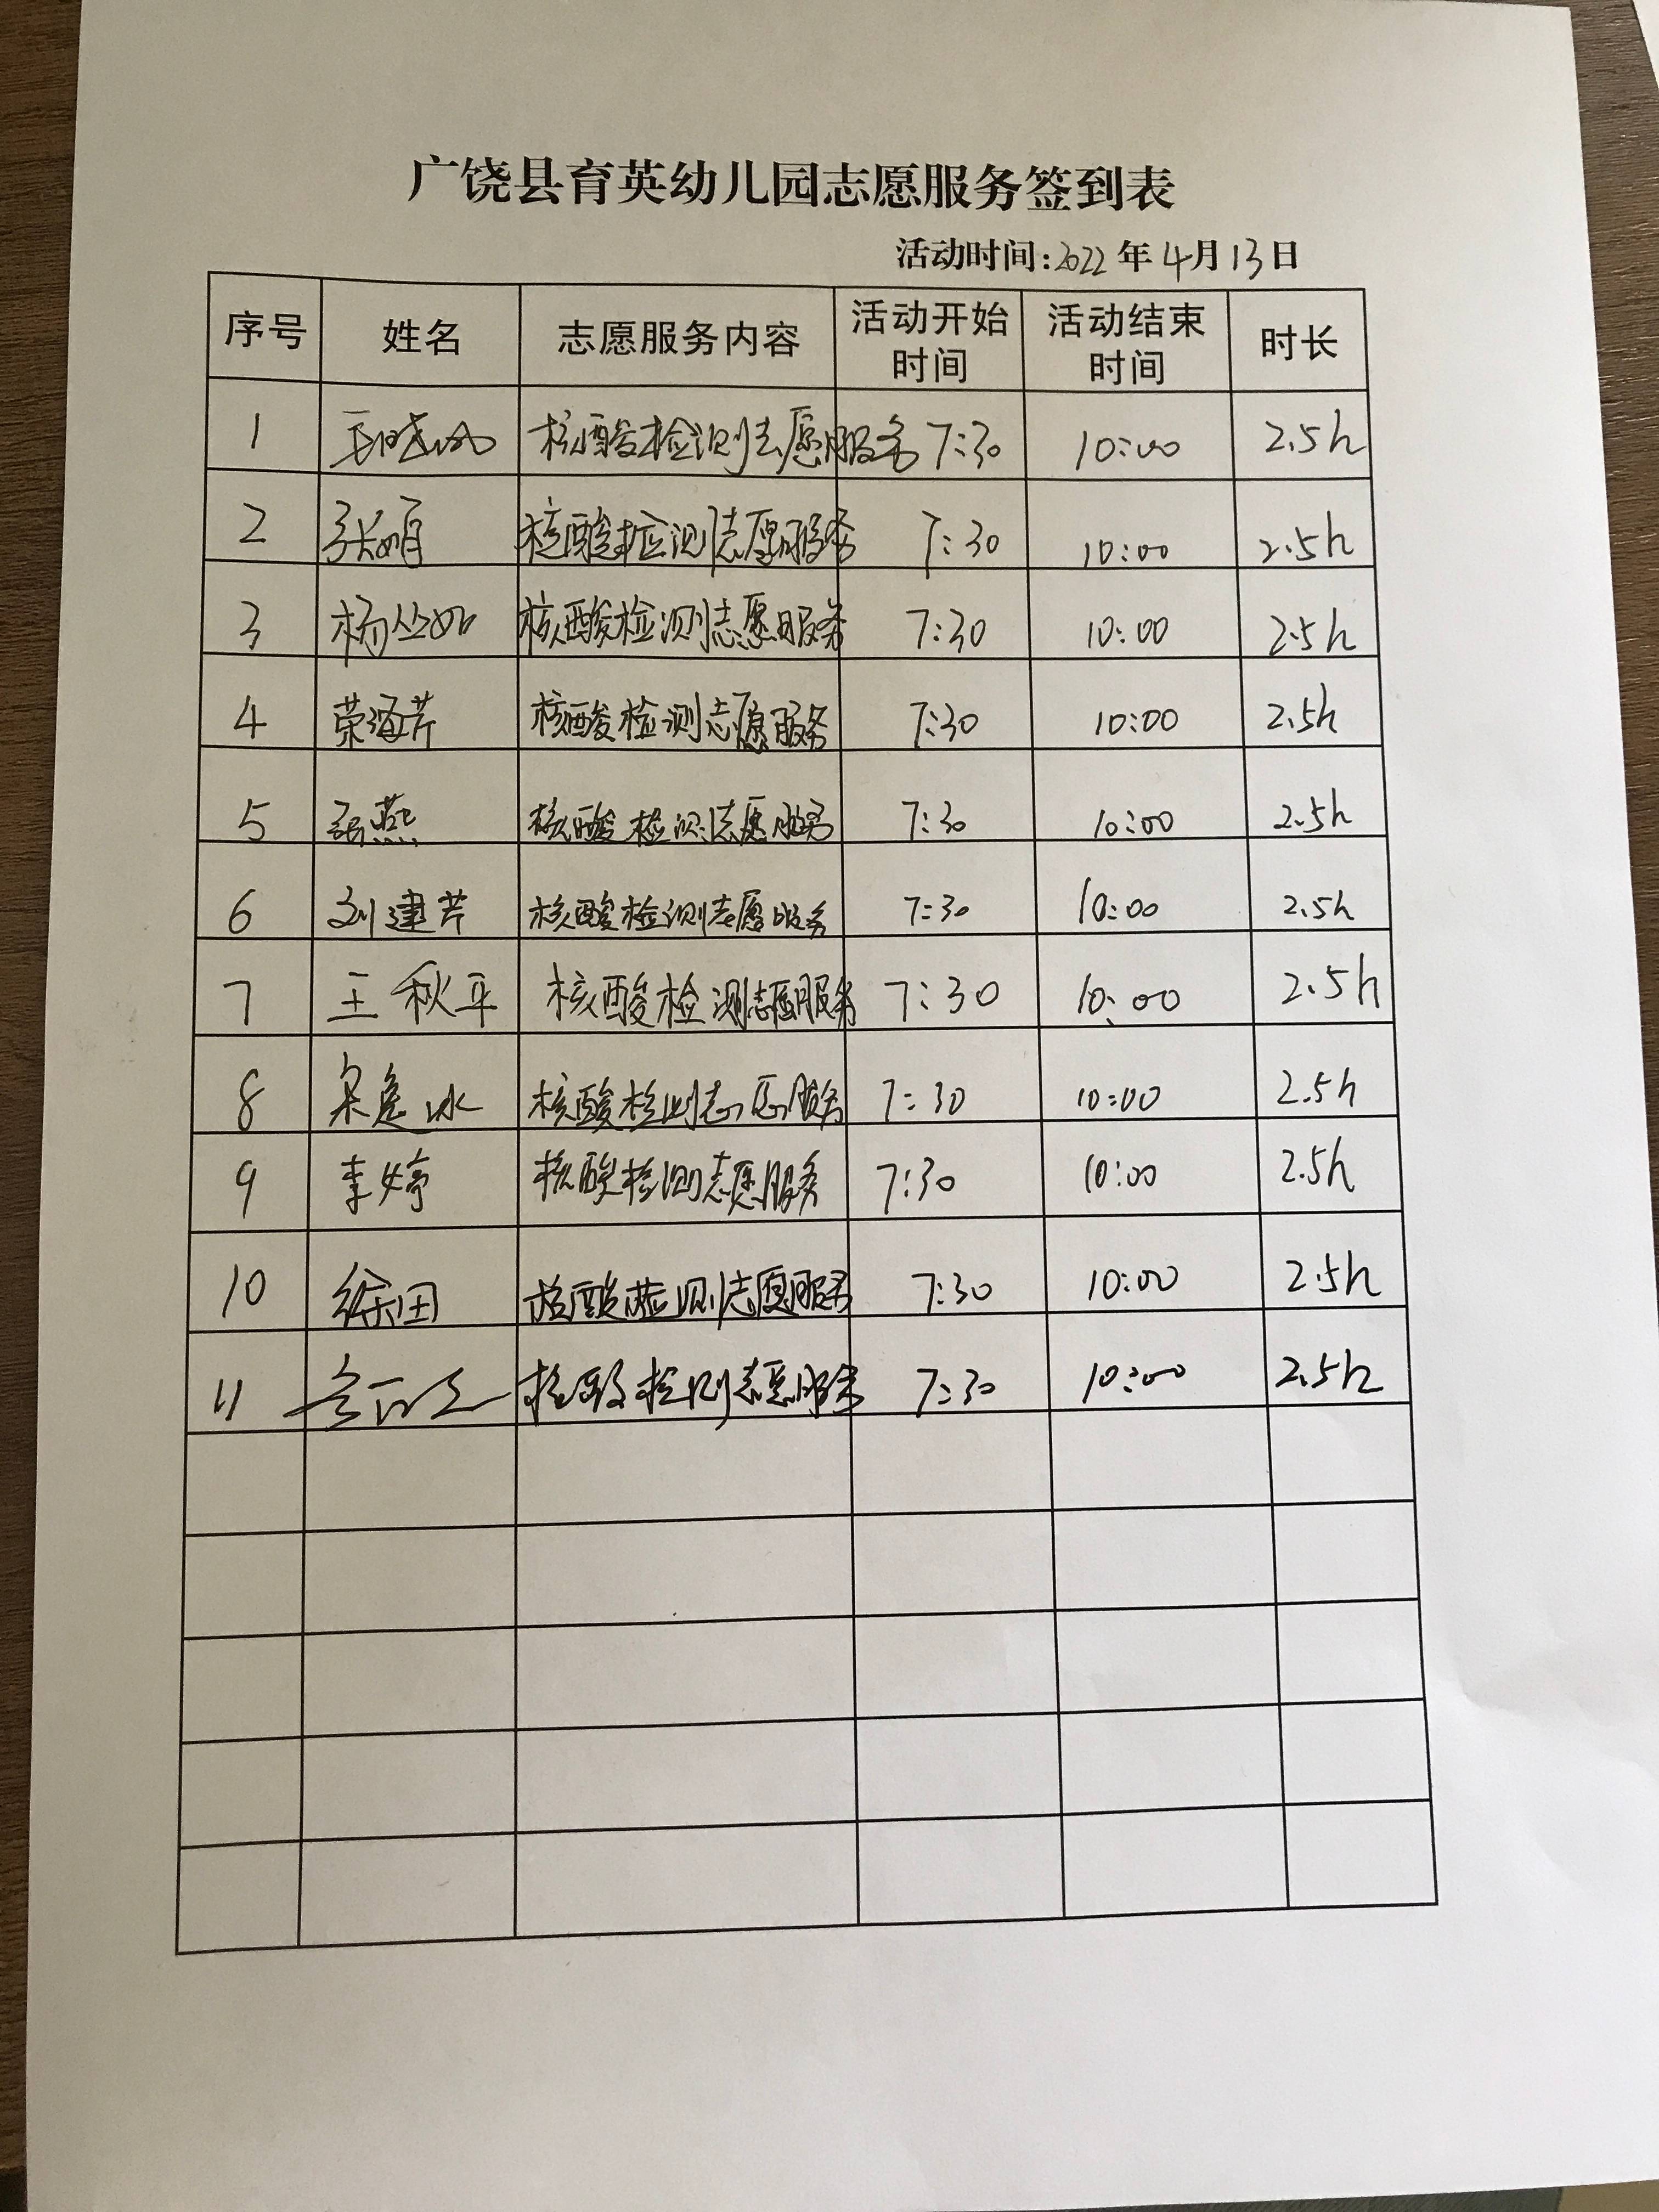 广饶县育英幼儿园志愿服务签到表
活动时间:2022年4月13日
序号 姓名 志愿服务内容 活动开始时间 活动结束时间 时长
1 核酸检测志愿服务 7:30 10:00 2.5h
2 张娟 核酸检测志愿服务 7:30 10:00 2.5h
3 杨丛如 核酸检测志愿服务 7:30 10:00 2.5h
4 荣海芹 核酸检测志愿服务 7:30 10:00 2.5h
5 张燕 核酸检测志愿服务 7:30 10:00 2.5h
6 刘建芹 核酸检测志愿服务 7:30 10:00 2.5h
7 王秋平 核酸检测志愿服务 7:30 10:00 2.5h
8 核酸检测志愿服务 7:30 10:00 2.5h
9 李婷 核酸检测志愿服务 7:30 10:00 2.5h
10 徐田 核酸检测志愿服务 7:30 10:00 2.5h
11 核酸检测志愿服务 7:30 10:00 2.5h